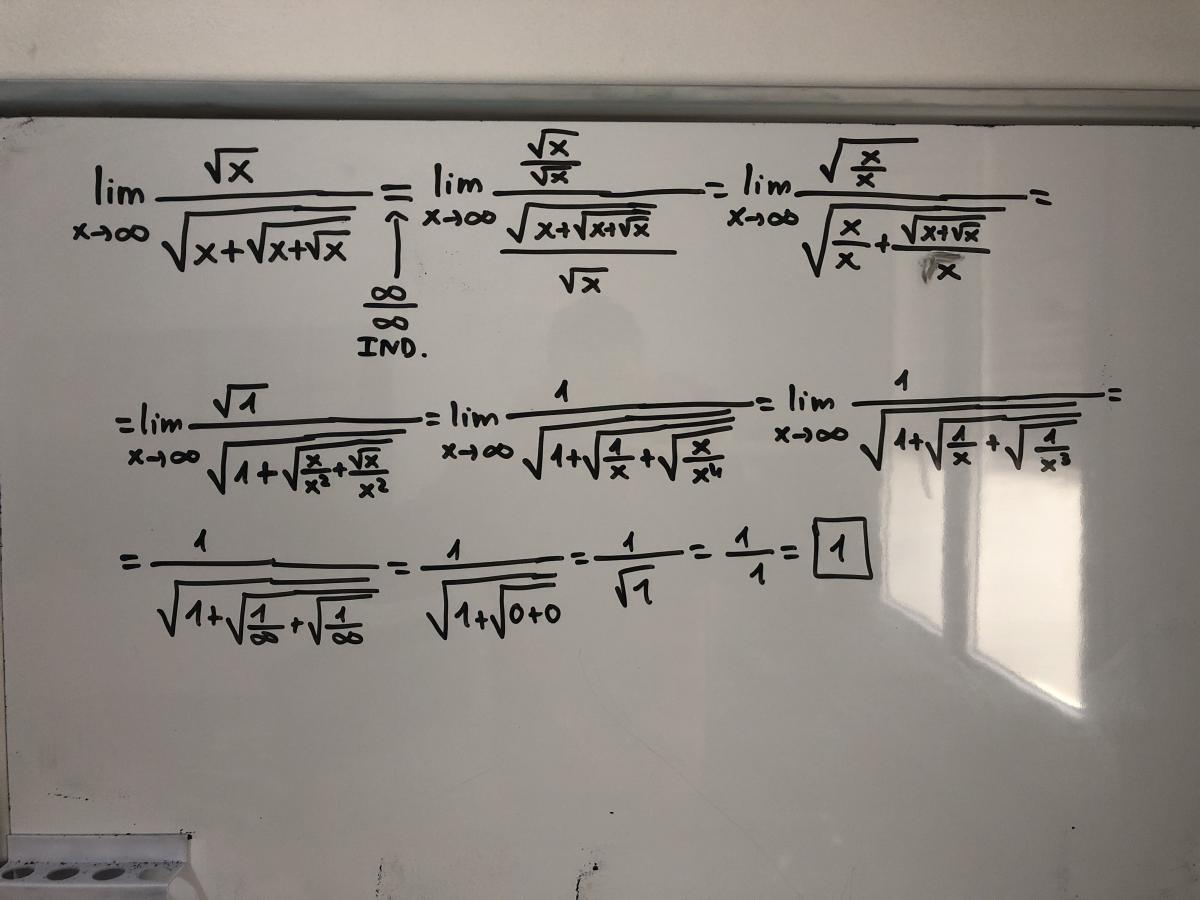 lim x→∞ √x / √(x+√(x+√x)) = lim x→∞ (√x/√x) / (√(x+√(x+√x)) / √x) = lim x→∞ √(x/x) / √(x/x + √(x+√x)/x) =
↑ ∞/∞ IND.
= lim x→∞ √1 / √(1+√(x/x² + √x/x²)) = lim x→∞ 1 / √(1+√(1/x + √(x/x⁴))) = lim x→∞ 1 / √(1+√(1/x + √(1/x³))) =
= 1 / √(1+√(1/∞ + √(1/∞))) = 1 / √(1+√(0+0)) = 1/√1 = 1/1 = 1